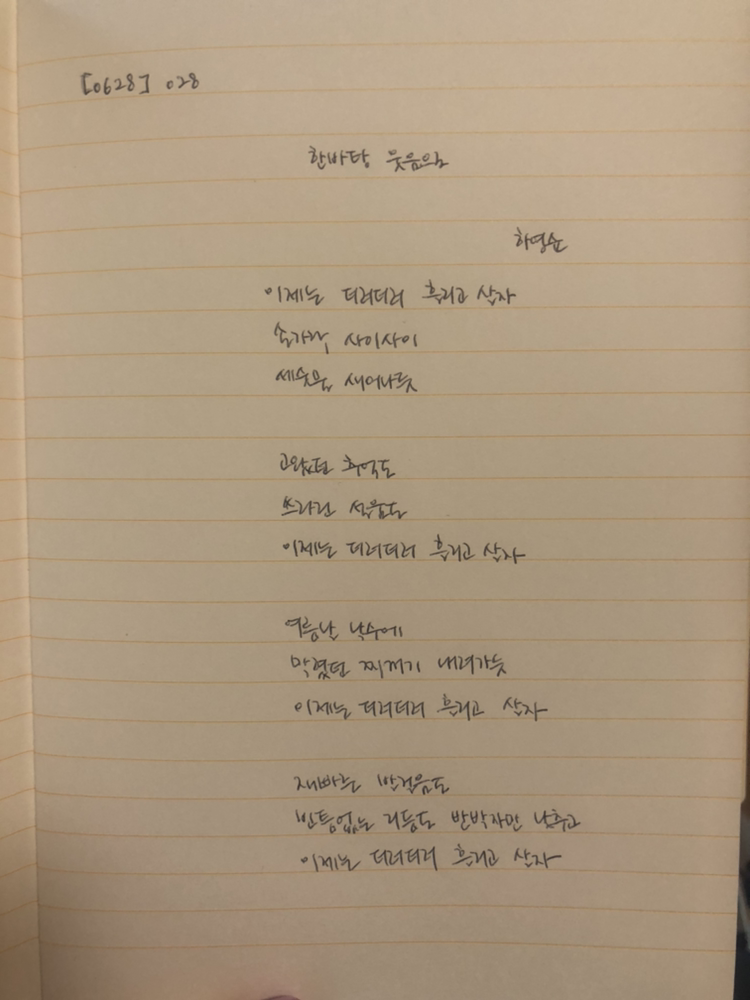 [0628] 028
한바탕 웃음으로
하영순
이제는 더러더러 흘리고 살자
손가락 사이사이
세숫물 새어나듯
고왔던 추억도
쓰라린 설움도
이제는 더러더러 흘리고 살자
여름날 낙수에
막혔던 찌꺼기 내려가듯
이제는 더러더러 흘리고 살자
재빠른 발걸음도
빈틈없는 리듬도 반박자만 낮추고
이제는 더러더러 흘리고 살자